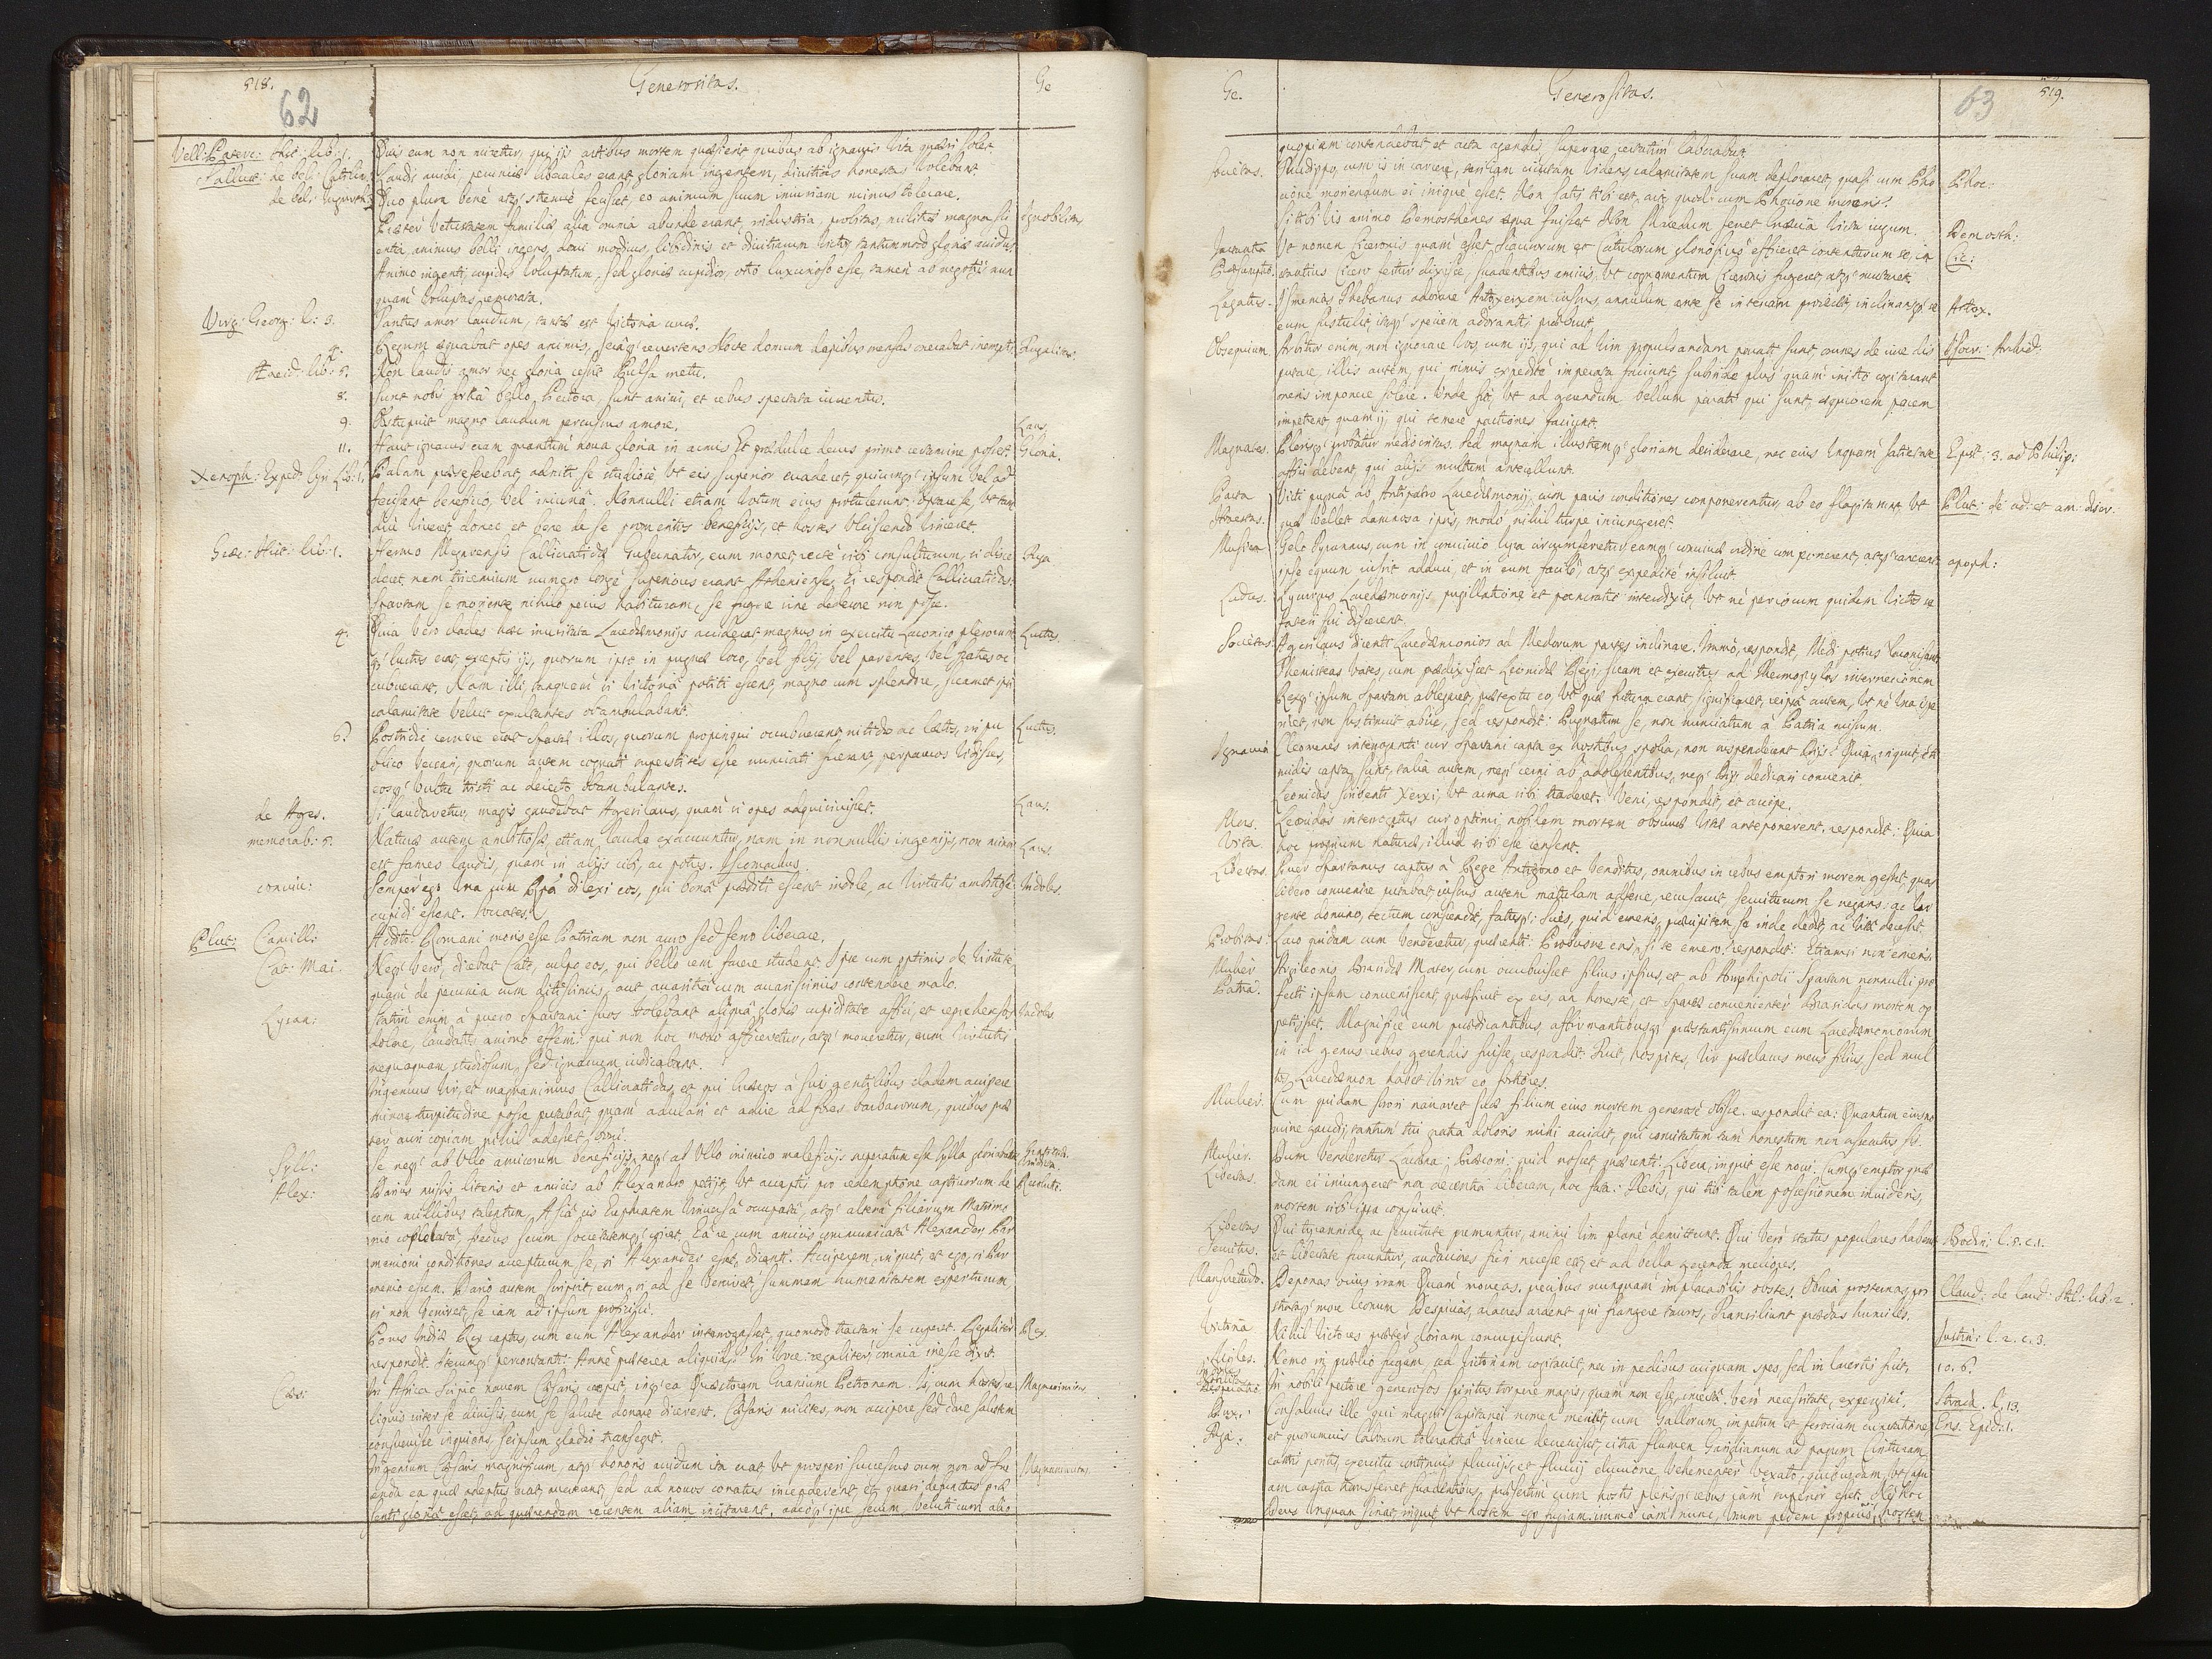 518.
62
Generositas.
Ge
Vell: Paterc: Hist: lib: 1.
Quis eum non miretur, qui ijs artibus mortem quaesierit quibus ab ignauis vita quaeri solet.
Sallust: de bel: Catilin:
Laudis auidi, pecuniae liberales erant, gloriam ingentem, diuitias honestas volebant.
de bel: Iugurth:
Quo plura bene atq; strenue fecisset, eo animum suum iniuriam minus tolerare.
Praeter vetustatem familiae, alia omnia abunde erant, industria, probitas, militiae magna sci
Ignobilitas
entia, animus belli ingens, domi modicus, libidinis et diuitiarum victor, tantummodo gloriae auidus.
Animo ingenti, cupidus voluptatum, sed gloriae cupidior, otio luxurioso esse, tamen ab negotijs nun
quam voluptas remorata.
Virg: Georg: l: 3.
Tantus amor laudum, tantae est victoria curae.
4.
Regum aequabat opes animis, seraq; reuertens Nocte domum dapibus mensas onerabat inemptis.
Frugalitas.
Aeneid: lib: 5.
Non laudis amor nec gloria cessit Pulsa metu.
8.
Sunt nobis fortia bello Pectora, sunt animi, et rebus spectata iuuentus.
9.
Obstupuit magno laudum percussus amore.
Laus.
11.
Haut ignarus eram quantum noua gloria in armis Et praedulce decus primo certamine posset.
Gloria.
Xenoph: Exped: Cyri lib: 1.
Palam prae se ferebat, adniti se studiose vt eis superior euaderet, quicunq; ipsum vel ad
fecissent beneficio, vel iniuria. Nonnulli etiam votum eius protulerunt: optare se, vt tam
diu viueret, donec et bene de se promeritos beneficijs, et hostes vlciscendo vinceret.
Graec: Hist: lib: 1.
Hermo Megarensis Callicratidae Gubernator, eum monet recte sibi consulturum, si disce
Fuga
deret, nam triremium numero longe superiores erant Athenienses. Ei respondit Callicratidas:
Spartam se moriente nihilo peius habituram, se fugere sine dedecore non posse.
4.
Quia vero clades haec inusitata Lacedaemonijs acciderat magnus in exercitu Laconico plerorum
Luctus.
q; luctus erat, exceptis ijs, quorum ipso in pugnae loco, vel filij, vel parentes, vel fratres oc
cubuerant. Nam illi, tanquam si victoria potiti essent, magno cum splendore, suamet ipsi
calamitate velut exultantes obambulabant.
6.
Postridie cernere erat Spartae illos, quorum propinqui occubuerant nitidos ac laetos, in pu
Luctus.
blico versari, quorum autem cognati superstites esse nunciati fuerant, perpaucos vidisses,
eosq; vultu tristi ac deiecto obambulantes.
de Ages.
Si laudaretur, magis gaudebat Agesilaus, quam si opes adquisiuisset.
Laus.
memorab: 5.
Naturae autem ambitiosae, etiam laude exacuuntur, nam in nonnullis ingenijs non minor
Laus.
est fames laudis, quam in alijs cibi, ac potus. Iscomachus.
conuiu:
Semper ego vna cum Repa dilexi eos, qui bona praediti essent indole, ac virtutis ambitiose
Indoles.
cupidi essent. Socrates.
Plut: Camill:
Addito: Romani moris esse Patriam non auro sed ferro liberare.
Cat: Mai.
Neq; vero, dicebat Cato, culpo eos, qui bello rem facere student. Ipse cum optimis de virtute,
quam de pecunia cum ditissimis, aut auaritia cum auarissimis contendere malo.
Lysan:
Statim enim a puero Spartani suos volebant aliqua gloriae cupiditate affici, et reprehensos
Indoles.
dolere, laudatos animo efferri: qui non hoc modo afficeretur, atq; moueretur, eum virtutis
nequaquam studiosum, sed ignauum iudicabant.
Ingenuus vir, et magnanimus Callicratidas, et qui Graecos a sui gentilibus cladem accipere
minore turpitudine posse putabat, quam adulari et adire ad fores barbarorum, quibus prae
ter auri copiam nihil adesset, boni.
Syll:
Se neq; ab vllo amicorum beneficijs, neq; ab vllo inimico maleficijs superatum esse Sylla gloriabatur.
Alex:
Darius missis literis et amicis ab Alexandro petijt, vt acceptis pro redemptione captiuorum de
cem millibus talentum, Asia cis Euphratem vniuersa occupata, atq; altera filiarum Matrimo
nio copulata, foedus secum societatemq; iniret. Ea re cum amicis communicata Alexander Par
menioni conditiones accepturum se, si Alexander esset, dicenti: Acciperem, inquit, et ego, si Par
menio essem. Dario autem scripsit, eum, si ad se veniret, summam humanitatem experturum,
si non veniret, se iam ad ipsum proficisci.
Porus Indiae Rex captus, cum eum Alexander interrogasset, quomodo tractari se cuperet. Regaliter
Rex.
respondit. Iterumq; percontanti: Anne praeterea aliquid? In voce: regaliter, omnia inesse dixit.
Caes:
In Africa Scipio nauem Caesaris caepit, inq; ea Quaestorem Granium Petronem. Is, cum hostes, re
Magnanimitas.
liquis inter se diuisis, eum se salute donare dicerent. Caesaris milites, non accipere sed dare salutem
consueuisse inquiens, seipsum gladio transegit.
Ingenium Caesaris magnificum, atq; honoris auidum ita erat, vt prosperi successus eum non ad fru
Magnanimitas.
enda ea quae adeptus erat, mouerent, sed ad nouos conatus incenderent, et quasi defunctus prae
senti gloria esset, ad quaerendam recentem aliam incitarent, adeoq; ipse secum, veluti cum alio
Ge.
Generositas.
63
519.
quopiam contendebat et acta agendis superare certatim laborabat.
Societas.
Thudippo, cum is in carcere, tentam cicutam videns, calamitatem suam deploraret, quasi cum Pho
Phoc:
cione moriendum ei inique esset. Non satis tibi est, ait, quod cum Phocione moreris?
Si tibi vis animo Demosthenes aequa fuisset Non Macedum ferret Graecia victa iugum.
Demosth:
Vt nomen Ciceronis quam esset Scaurorum et Catulorum gloriosius efficeret contenturum se, co
Cic:
stantius Cicero fertur dixisse, suadentibus amicis, vt cognomentum Ciceronis fugeret, atq; mutaret.
Legatus.
Ismenias Thebanus adorare Artoxerxem iussus, annulum ante se in terram proiecit, inclinansq; se
Artox.
eum sustulit, itaq; speciem adorantis praebuit.
Obsequium.
Arbitror enim, non ignorare vos, cum ijs, qui ad vim propulsandam parati sunt, omnes de iure dis
Isocr: Archid:
putare, illis autem, qui nimis expedite imperata faciunt, subinde plus quam initio cogitarant
oneris imponere solere. Vnde fit, vt ad gerendum bellum parati qui sunt, aequiorem pacem
impetrent quam ij, qui temere pactiones faciunt.
Magnates.
Plerisq; probatur mediocritas. Sed magnam illustremq; gloriam desiderare, nec eius vnquam satietate
Epist: 3. ad Philip:
affici debent, qui alijs multum antecellunt.
Pacta
Victi pugna ab Antipatro Lacedaemonij, cum pacis conditiones componerentur, ab eo flagitarunt, vt
Plut: de ad: et am: discr:
Honestas.
quae vellet damnosa ipsis, modo nihil turpe iniungeret.
Musica
Gelo Tyrannus, cum in conuiuio lyra circumferretur, eamq; conuiuae ordine componerent, atq; canerent,
apoph:
ipse equum iussit adduci, et in eum facile, atq; expedite insiluit.
Ludus.
Lycurgus Lacedaemonijs, pugillatione et pancratio interdixit, vt ne per iocum quidem victos se
fateri sui discerent.
Societas.
Agesilaus dicenti Lacedaemonios ad Medorum partes inclinare. Immo, respondit, Medi potius laconisant.
Themisteas vates, cum praedixisset Leonidae Regi, suam et exercitus ad Thermopylas internecionem
Rexq; ipsum Spartam ablegaret, praetextu eo, vt quae futura erant significaret, reipsa autem, vt ne vna ipse
periret, non sustinuit abire, sed respondit: Pugnatum se, non nunciatum a Patria missum.
Ignauia
Cleomenes interroganti cur Spartani capta ex hostibus spolia, non suspenderent Dijs? Quia, inquit, a ti
midis capta sunt, talia autem, neq; cerni ab adolescentibus, neq; Dijs dedicari conuenit.
Leonidas scribenti Xerxi, vt arma sibi traderet. Veni, respondit, et accipe.
Mors.
Leonidas interrogatus cur optimi nobilem mortem obscurae vitae anteponerent. respondit: Quia
Vita.
hoc proprium naturae, illud sibi esse censent.
Libertas.
Puer Spartanus captus a Rege Antigono et venditus, omnibus in rebus emptori morem gessit, quae
libero conuenire putabat, iussus autem matulam afferre, recusauit seruiturum se negans: ac vr
gente domino, tectum conscendit, fatusq;: Scies, quid emeris, praecipitem se inde dedit, ac vita decessit.
Probitas.
Laco quidam cum venderetur, quaerenti: Probusne eris si te emero? respondit: Etiamsi non emeris.
Mulier
Argileonis Brasidae Mater, cum occubuisset filius ipsius, et ab Amphipoli Spartam nonnulli pro
Patria.
fecti ipsam conuenissent, quaesiuit ex eis, an honeste, et Sparta conuenienter Brasidas mortem op
petisset. Magnifice eum praedicantibus, affirmantibusq; praestantissimum eum Lacedaemoniorum
in id genus rebus gerendis fuisse, respondit: Fuit, hospites, vir praeclarus meus filius, sed mul
tos Lacedaemon habet viros eo fortiores.
Mulier.
Cum quidam sorori narraret suae filium eius mortem generose obijsse. respondit ea: Quantum eius no
mine gaudij, tantum tui gratia doloris mihi accidit, qui comitatum tam honestum non assecutus sis.
Mulier.
Dum venderetur Lacaena: Praeconi: quid nosset, quaerenti: Libera, inquit esse noui. Cumq; emptor quae
Libertas.
dam ei iniungeret non decentia liberam, hoc fata: Flebis, qui tibi talem possessionem inuideris,
mortem sibi ipsa consciuit.
Libertas
Qui tyrannide, ac seruitute premuntur, animi vim plane demittunt. Qui vero status populares habent
Bodin: l. 5. c. 1.
Seruitus.
et libertate fruuntur, audaciores fieri necesse est, et ad bella gerenda meliores.
Mansuetudo.
Deponas ocius iram Quam moueas, precibus nunquam implacabilis obstes, Obuia prosternas, pro
Claud: de laud: Stil: lib: 2.
strataq; more leonum Despicias, alacres ardent qui frangere tauros, Transiliunt praedas humiles.
Victoria
Nihil victores praeter gloriam concupiscunt.
Iustin: l. 2. c. 3.
Milites.
Nemo in publico fugam, sed victoriam cogitauit, nec in pedibus cuiquam spes, sed in lacertis fuit,
10. 6.
In nobili pectore generosos spiritus torpere magis, quam non esse, iniecta vero necessitate, expergisci.
Strad. l. 13.
Dux.
Consaluus ille qui magni Capitanei nomen meruit, cum Gallorum impetum et ferociam cunctatione
Eus. Epid: 1.
Fuga:
et quorumuis laborum tolerantia vincere decreuisset, citra flumen Garilianum ad pagum Cinturam
castris positis, exercitu continuis pluuijs, et fluuij eluuione, vehementer vexato, quibusdam, vt Capu
am castra transferret suadentibus, praesertim cum hostis plerisq; rebus iam superior esset. Ne hoc
Deus vnquam sinat, inquit, vt hostem ego fugiam. immo iam nunc, vnum pedem propius hostem